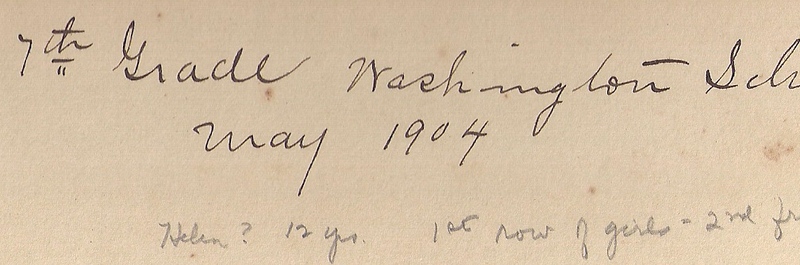 7th Grade Washington Sch
May 1904
Helen? 12 yrs. 1st row of girls - 2nd fr